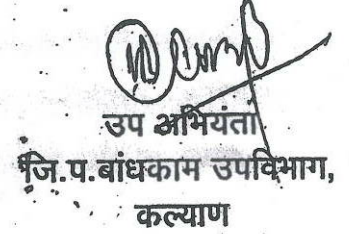 उप अभियंता
जि.प.बांधकाम उपविभाग,
कल्याण